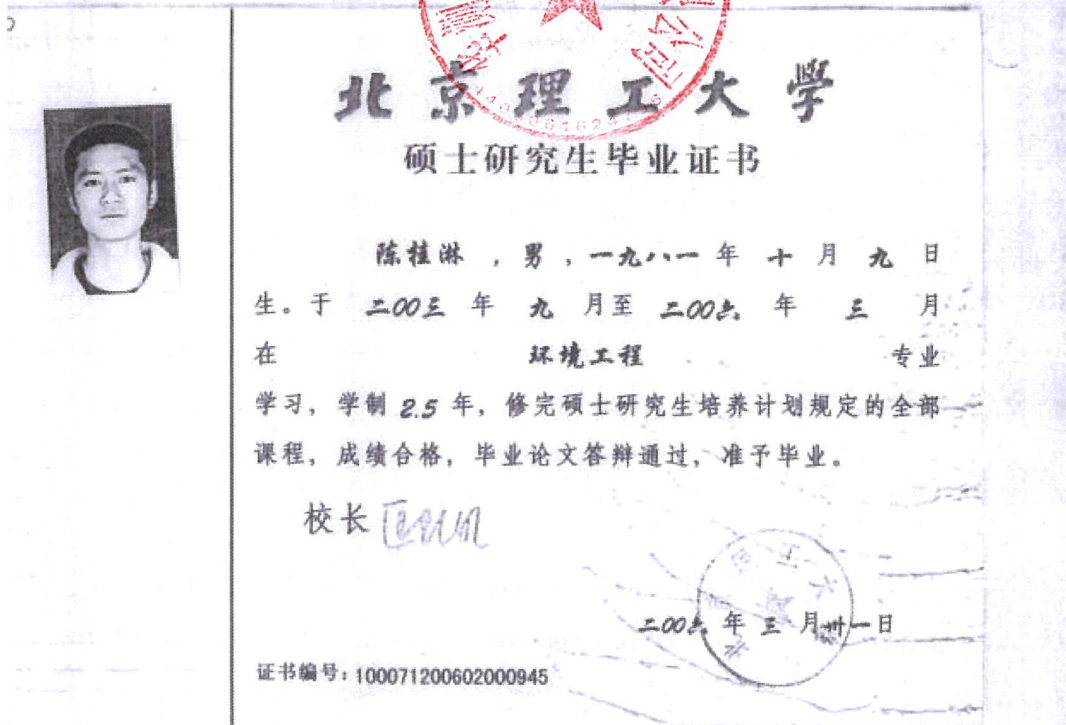 北京理工大学
硕士研究生毕业证书
陈桂淋，男，一九八一年十月九日
生。于二00三年九月至二00六年三月
在 环境工程 专业
学习，学制2.5年，修完硕士研究生培养计划规定的全部
课程，成绩合格，毕业论文答辩通过，准予毕业。
校长
二00六年三月卅一日
证书编号：100071200602000945